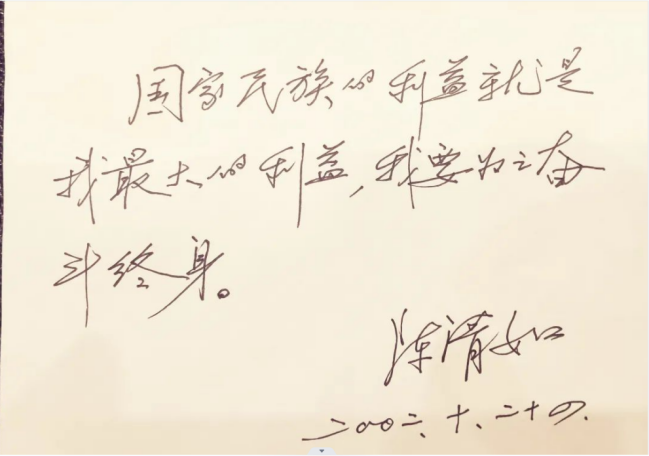 国家民族的利益就是
我最大的利益，我要为之奋
斗终身。
陈清如
二〇〇二、十、二十四.